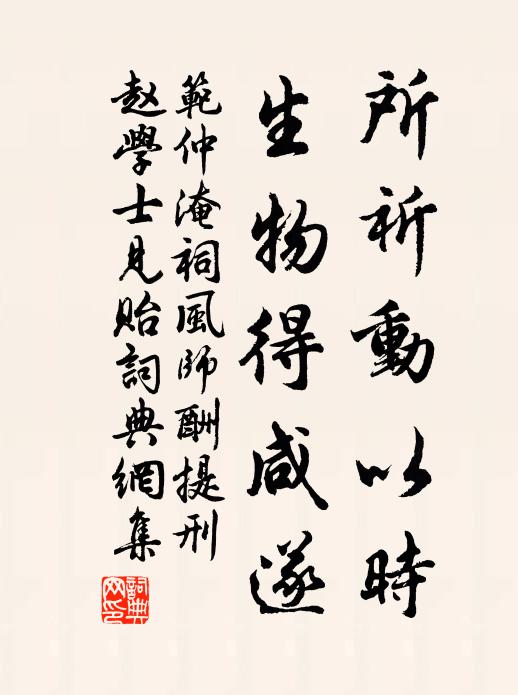 所祈動以時
生物得咸遂
範仲淹祠風師酬提刑
趙學士見貽詞典網集
詞典
网印